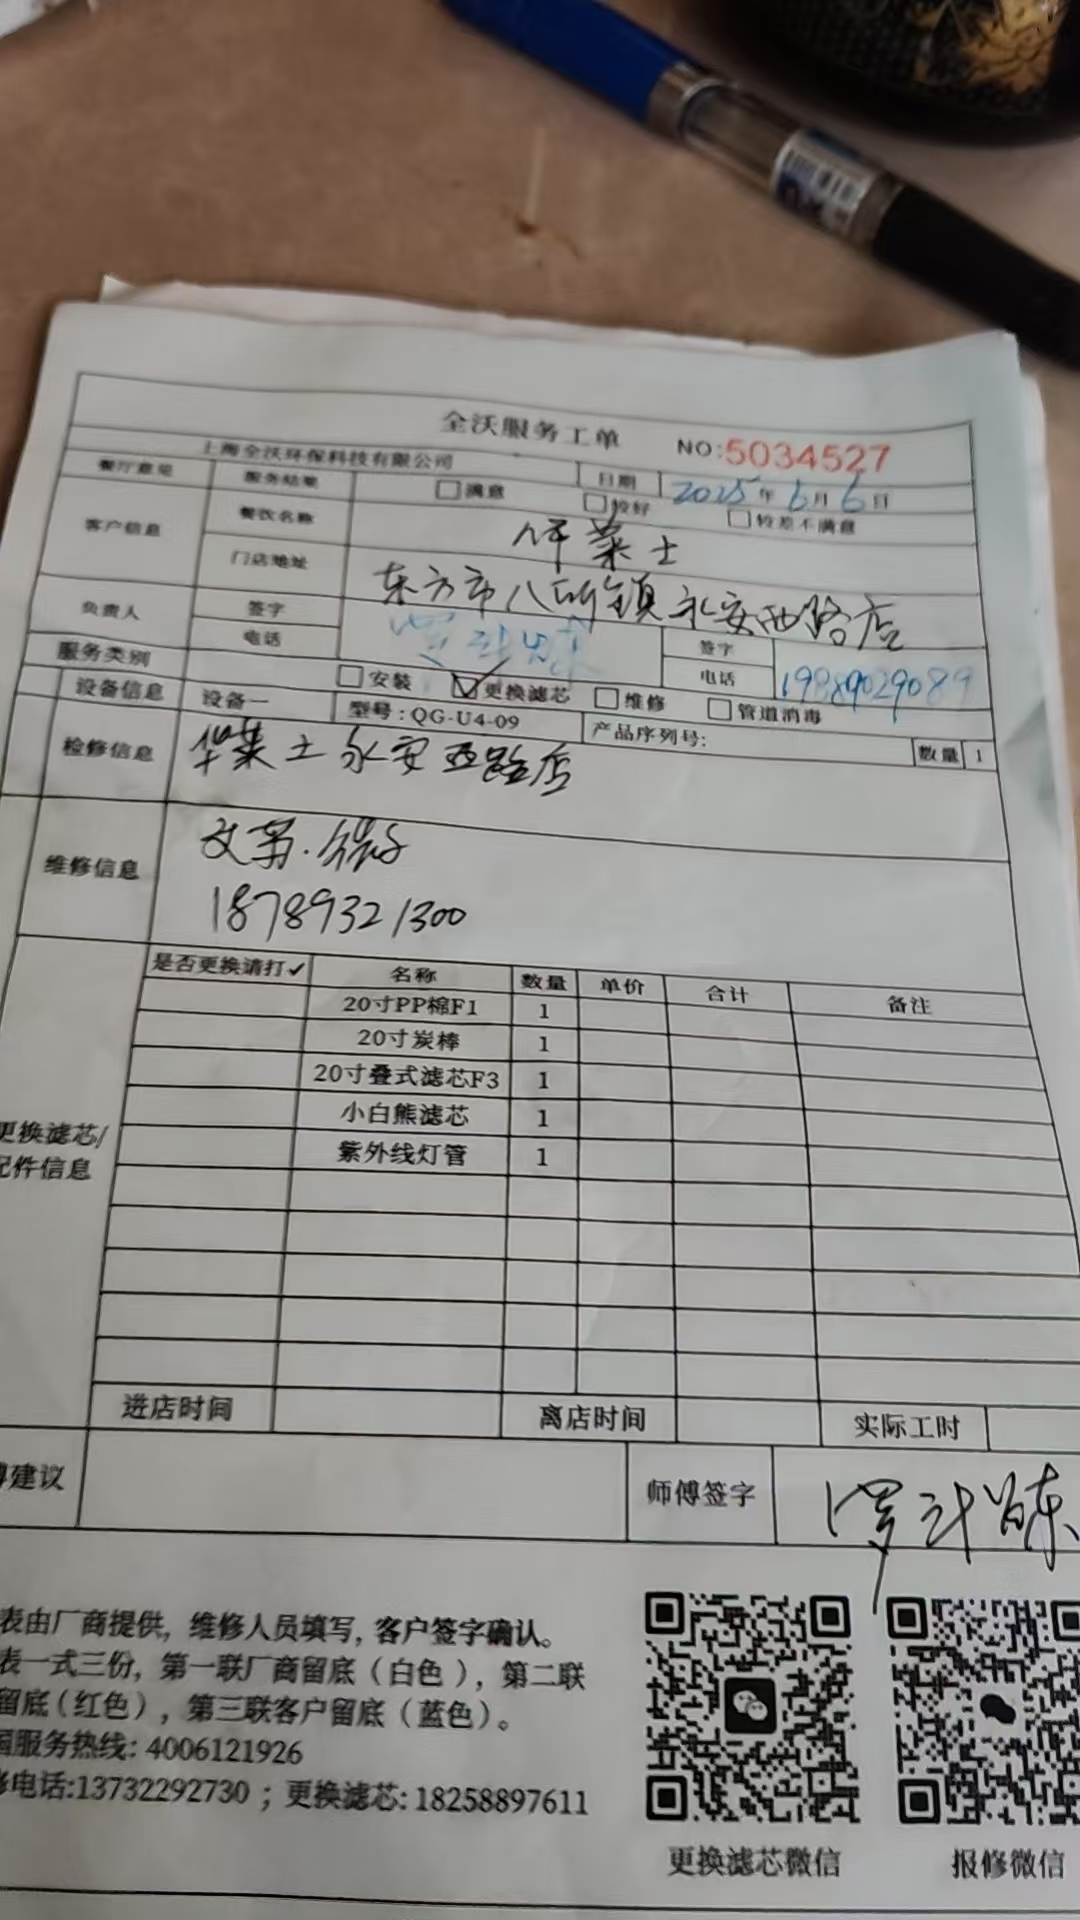 全沃服务工单 NO:5034527
上海全沃环保科技有限公司 日期 2025年6月6日
餐厅意见 服务结果 满意 较好 较差不满意
客户信息 餐饮名称 华莱士
门店地址 东方市八所镇永安西路店
负责人 签字 签字
电话 电话 19989029089
服务类别 安装 更换滤芯 维修 管道消毒
设备信息 设备一 型号:QG-U4-09 产品序列号: 数量 1
检修信息 华莱士永安西路店
维修信息
18789321300
是否更换请打✓ 名称 数量 单价 合计 备注
20寸PP棉F1 1
20寸炭棒 1
20寸叠式滤芯F3 1
小白熊滤芯 1
紫外线灯管 1
更换滤芯/
配件信息
进店时间 离店时间 实际工时
建议 师傅签字
表由厂商提供，维修人员填写，客户签字确认。
表一式三份，第一联厂商留底（白色），第二联
留底（红色），第三联客户留底（蓝色）。
服务热线: 4006121926
电话:13732292730 ；更换滤芯: 18258897611
更换滤芯微信 报修微信